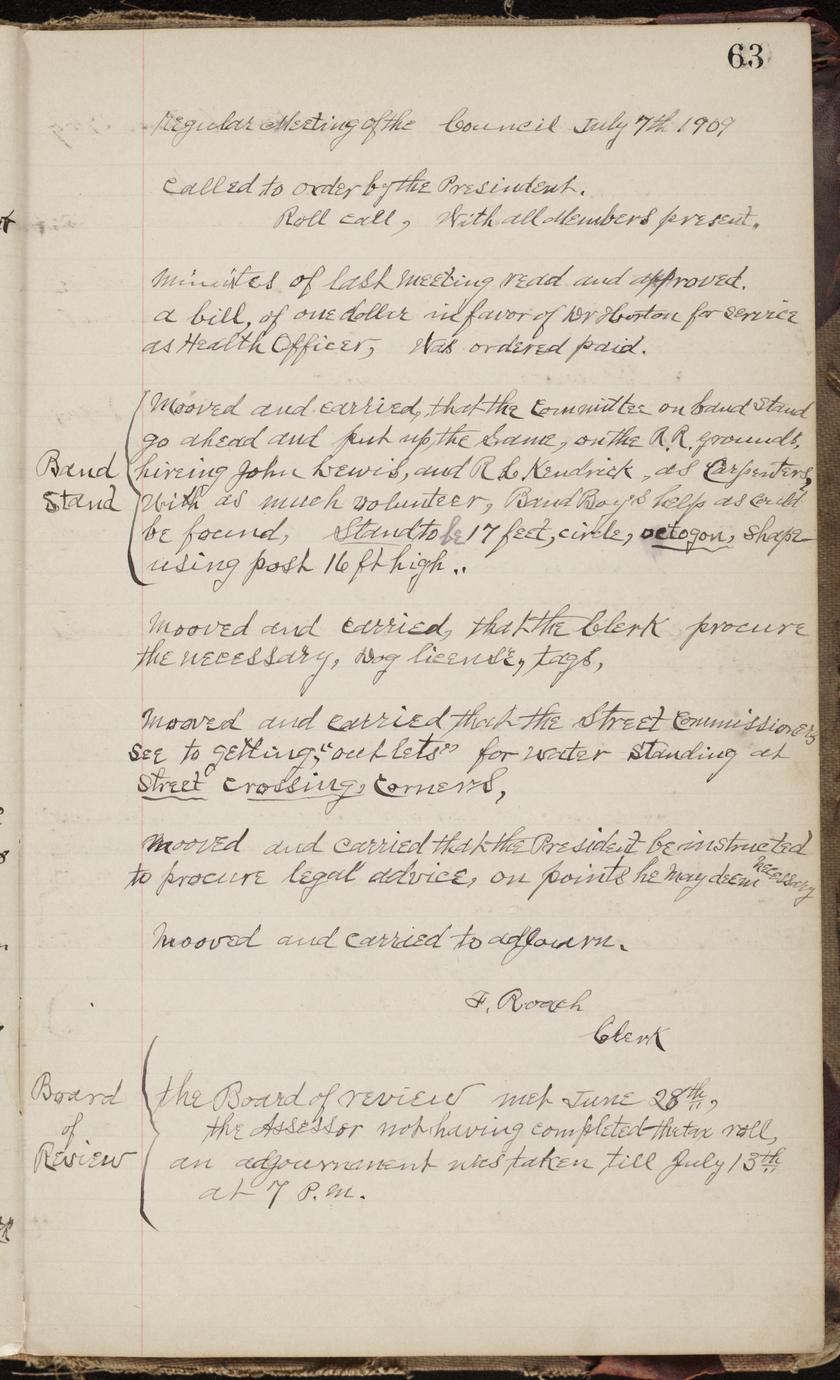 63
Regular Meeting of the Council July 7th 1909
Called to order by the Presindent.
Roll Call, With all Members present.
Minuites of last Meeting read and approved.
a bill, of one dollar in favor of Dr Horton for service
as Health Officer, Was ordered paid.
Mooved and carried, that the Committee on band stand
go ahead and put up, the Same, on the R.R. grounds,
Band hireing John Lewis, and R L Kendrick, as Carpenters,
Stand With as much volunteer, Band Boy's help as could
be found, Stand to be 17 feet, circle, octogon, shape
using post 16 ft high..
Mooved and carried, that the Clerk procure
the necessary, Dog license, tags,
Mooved and carried that the Street Commissioners
see to getting, "out lets" for water standing at
Street crossing, Corners,
Mooved and carried that the President be instructed
to procure legal advice, on points he May deem necessary
Mooved and carried to adjourn.
F. Roach
Clerk
Board the Board of review met June 28th,
of the Assessor not having completed the tax roll,
Review an adjournment was taken till July 13th
at 7 P.M.